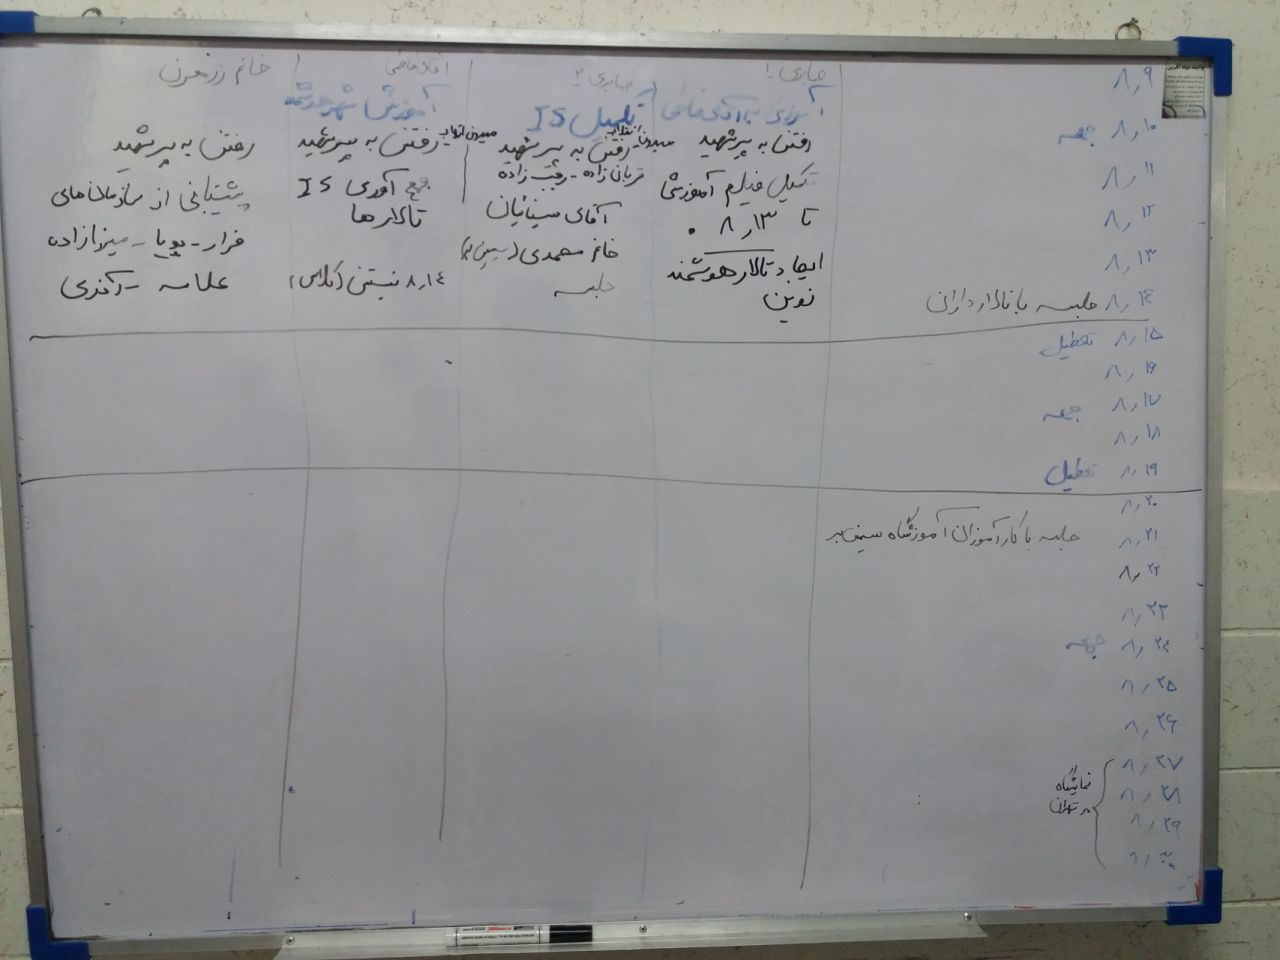 ۸٫۹
۸٫۱۰ جمعه
۸٫۱۱
۸٫۱۲
۸٫۱۳
۸٫۱۴ جلسه با تالارداران
۸٫۱۵ تعطیل
۸٫۱۶
۸٫۱۷ جمعه
۸٫۱۸
۸٫۱۹ تعطیل
۸٫۲۰
۸٫۲۱ جلسه با کارآموزان آموزشگاه سیمین بر
۸٫۲۲
۸٫۲۳
۸٫۲۴ جمعه
۸٫۲۵
۸٫۲۶
۸٫۲۷
۸٫۲۸
۸٫۲۹
۸٫۳۰
نمایشگاه
در تهران
صابری ۱
رفتن به پیرشهید
تکمیل فیلم آموزشی
تا ۸٫۱۳
ایجاد تالار هوشمند
نوین
صابری ۲
تکمیل IS
رفتن به پیرشهید میدان انقلاب
قربان زاده - رقیب زاده
آقای مینائیان
خانم محمدی
جلسه
آقای قاضی
آموزش شهر هوشمند
رفتن به پیرشهید میدان انقلاب
جمع آوری IS
تالارها
۸٫۱۴ نیستن (کلاس)
خانم
رفتن به پیرشهید
پشتیبانی از سازمانهای
فراز - پویا - میرزازاده
علامه -